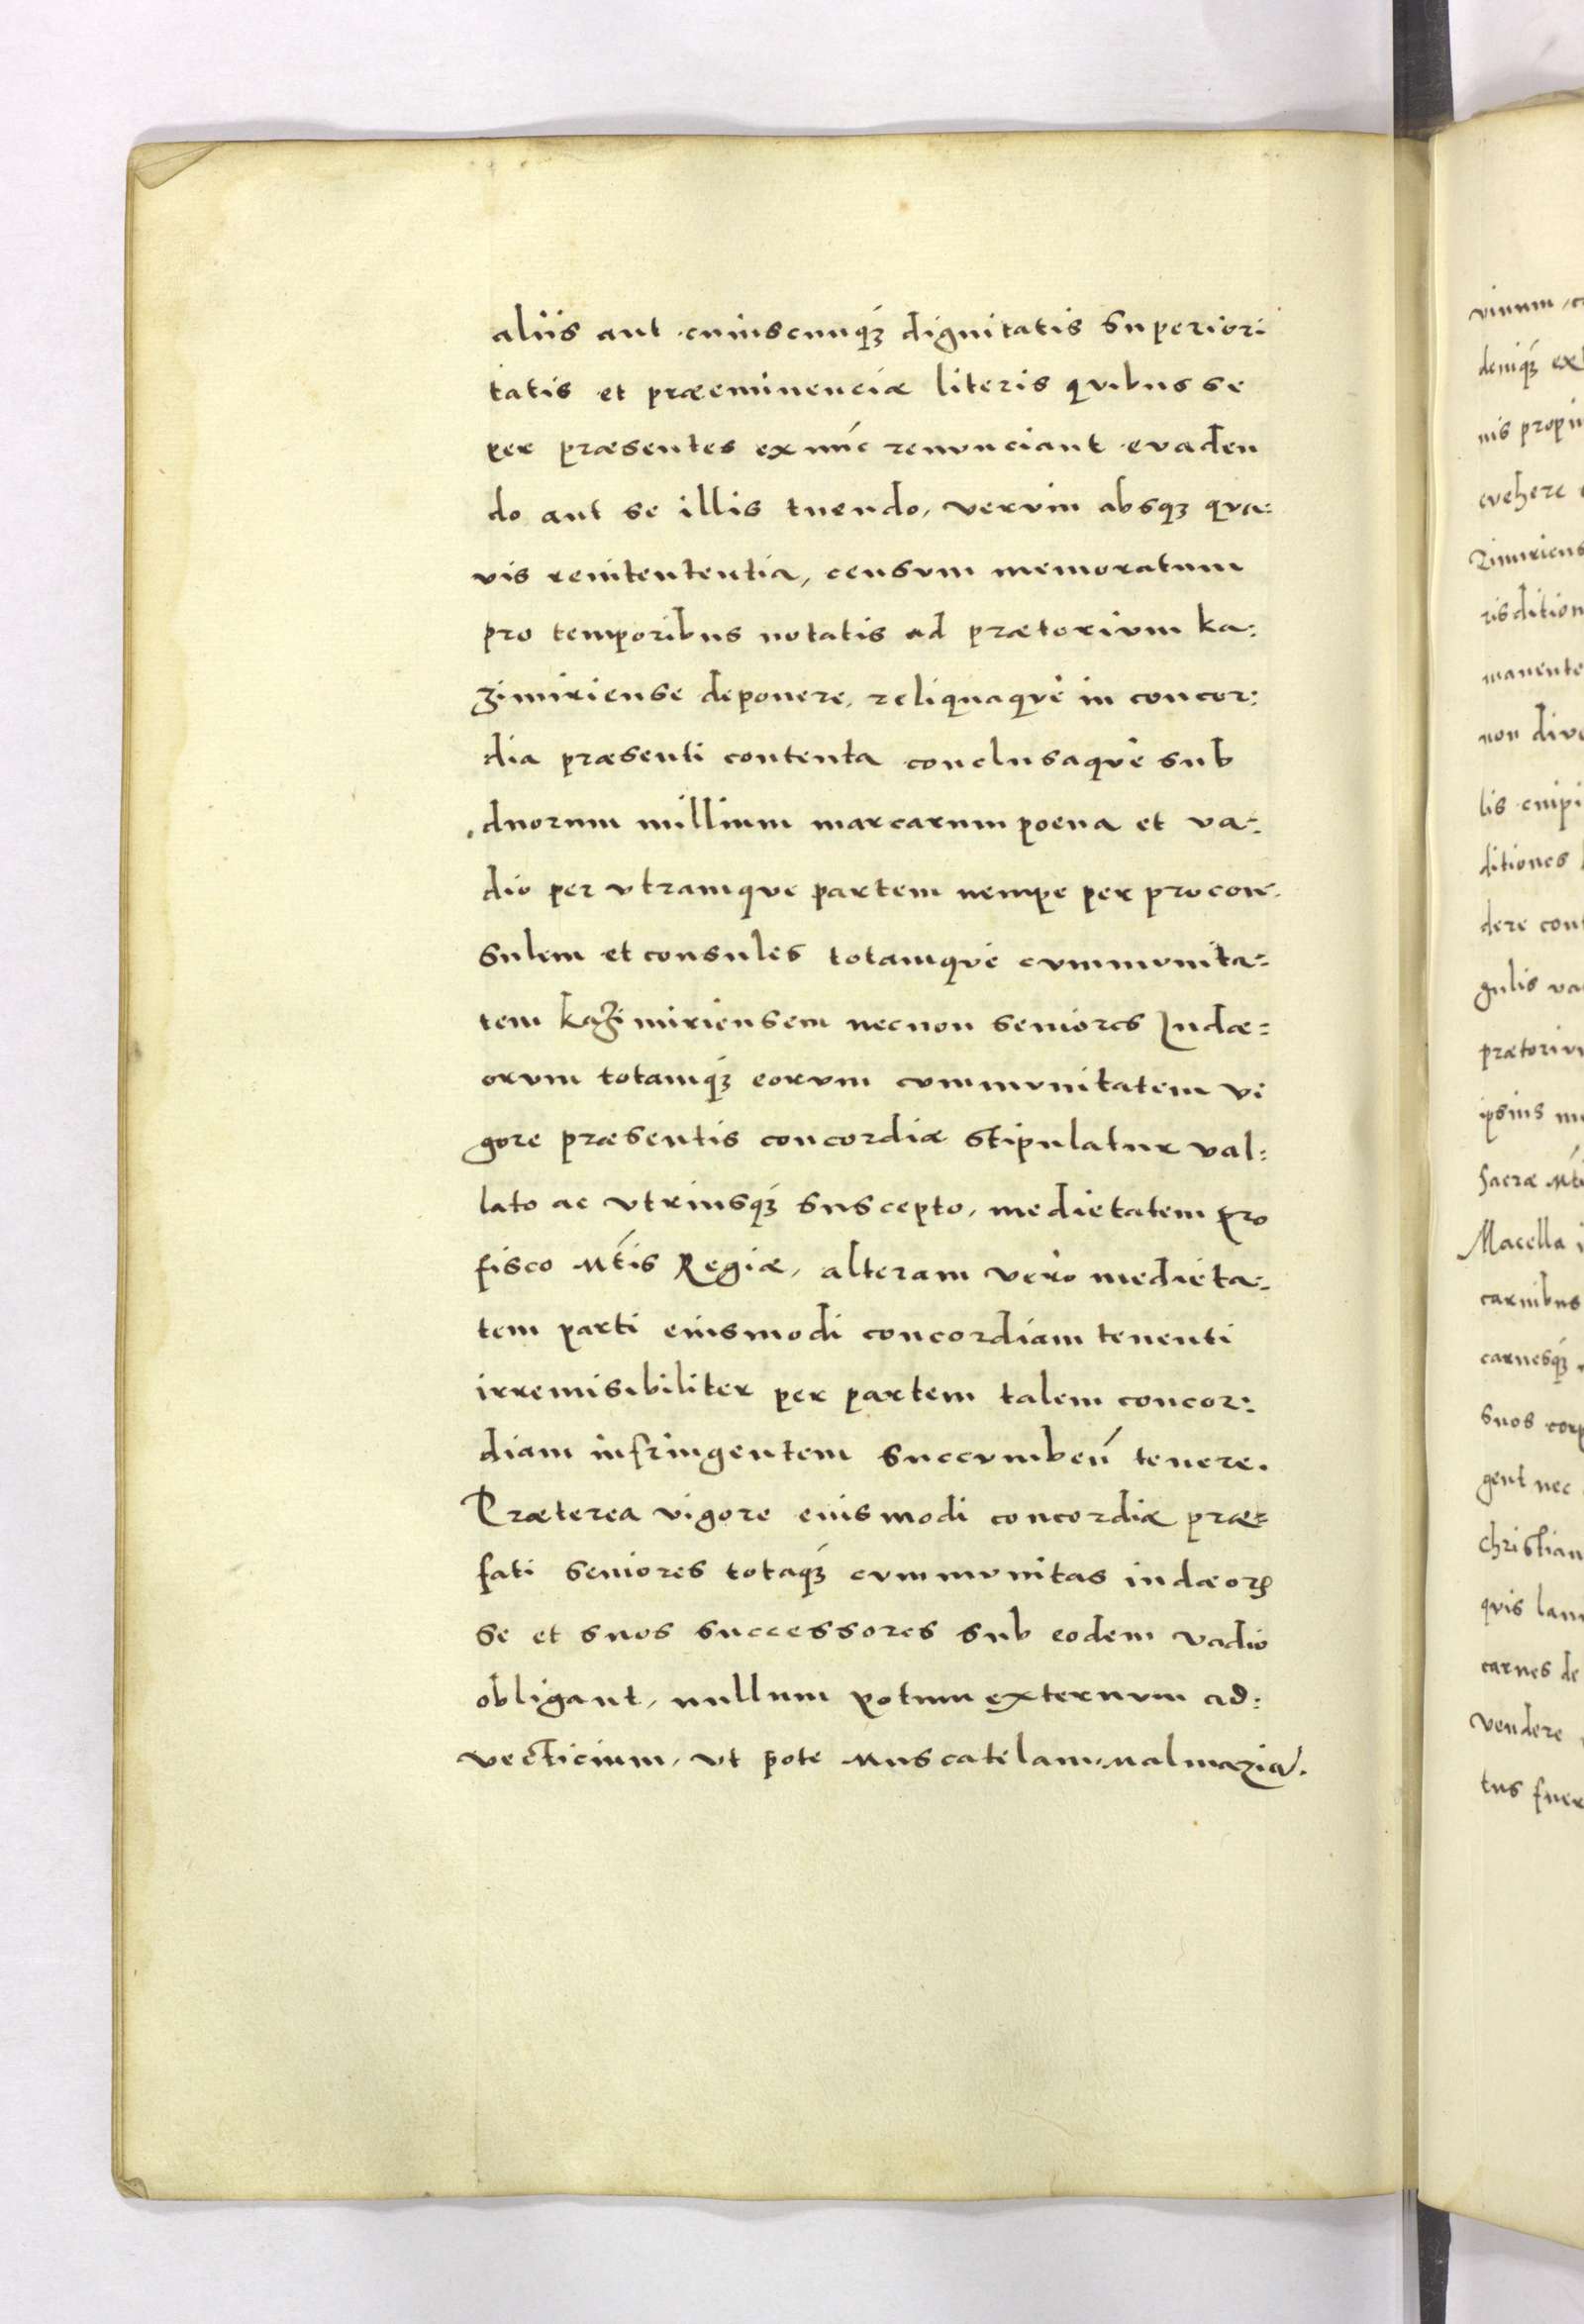 aliis aut cuiuscunqȝ dignitatis superiori
tatis et præeminenciæ literis quibus se
per præsentes ex nũc renunciant evaden
do aut se illis tuendo, verum absqȝ qua:
vis renitententia, censum memoratum
pro temporibus notatis ad prætorium ka:
zimiriense deponere, reliquaque in concor:
dia præsenti contenta conclusaque sub
duorum millium marcarum poena et va:
dio per vtramque partem nempe per procon:
sulem et consules totamque communita:
tem kazimiriensem necnon seniores Iudæ:
orum totamqȝ eorum communitatem vi
gore præsentis concordiæ stipulatur val:
lato ac vtriusqȝ suscepto, medietatem pro
fisco Mtis Regiæ, alteram vero medieta:
tem parti eiusmodi concordiam tenenti
irremisibiliter per partem talem concor:
diam infringentem succumben̄ tenere.
Præterea vigore eiusmodi concordiæ præ:
fati seniores totaqȝ communitas iudæorꝝ
se et suos successores sub eodem vadio
obligant, nullum potum externum ad:
vecticium, vt pote Muscatelam, Malmazia.
vinum,
deniqȝ ext
nis propi
evehere
Zimiriens
risdition
manente
non dive
lis
ditiones
dere cont
gulis va
prætoriu
ipsius
sacræ Mti
Macella i
carnibus
carnesqȝ
suos corp
gent nec
christian
quis lani
carnes de
vendere
tus fuer